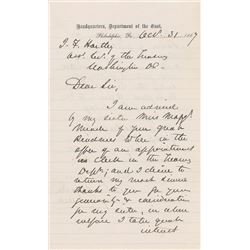 Headquarters, Department of the East,
Philadelphia, Pa. Oct. 31 1867
J. F. Hartley
Asst. Sec. of the Treasury
Washington DC.
Dear Sir,
I am advised
by my sister Miss Magg.
Meade of your great
kindness to her in the
offer of an appointment
as Clerk in the Treasury
Dept; and I desire to
return my most sincere
thanks to you for your
generosity & consideration
for my sister, in whose
welfare I take great
interest